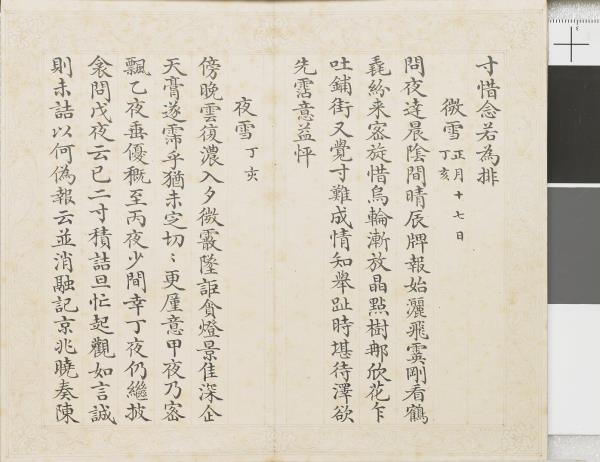 寸惜念若為排
微雪 正月十七日
丁亥
問夜達晨陰間晴辰牌報始灑飛霙剛看鶴
毳紛来密旋惜烏輪漸放晶點樹那欣花乍
吐鋪街又覺寸難成情知舉趾時堪待澤欲
先霑意益怦
夜雪 丁亥
傍晚雲復濃入夕微霰墜詎貪燈景佳深企
天膏遂霈乎猶未定切〻更廑意甲夜乃密
飄乙夜垂優概至丙夜少間幸丁夜仍繼披
衾問戊夜云已二寸積詰旦忙起觀如言誠
則未詰以何偽報云並消融記京兆曉奏陳